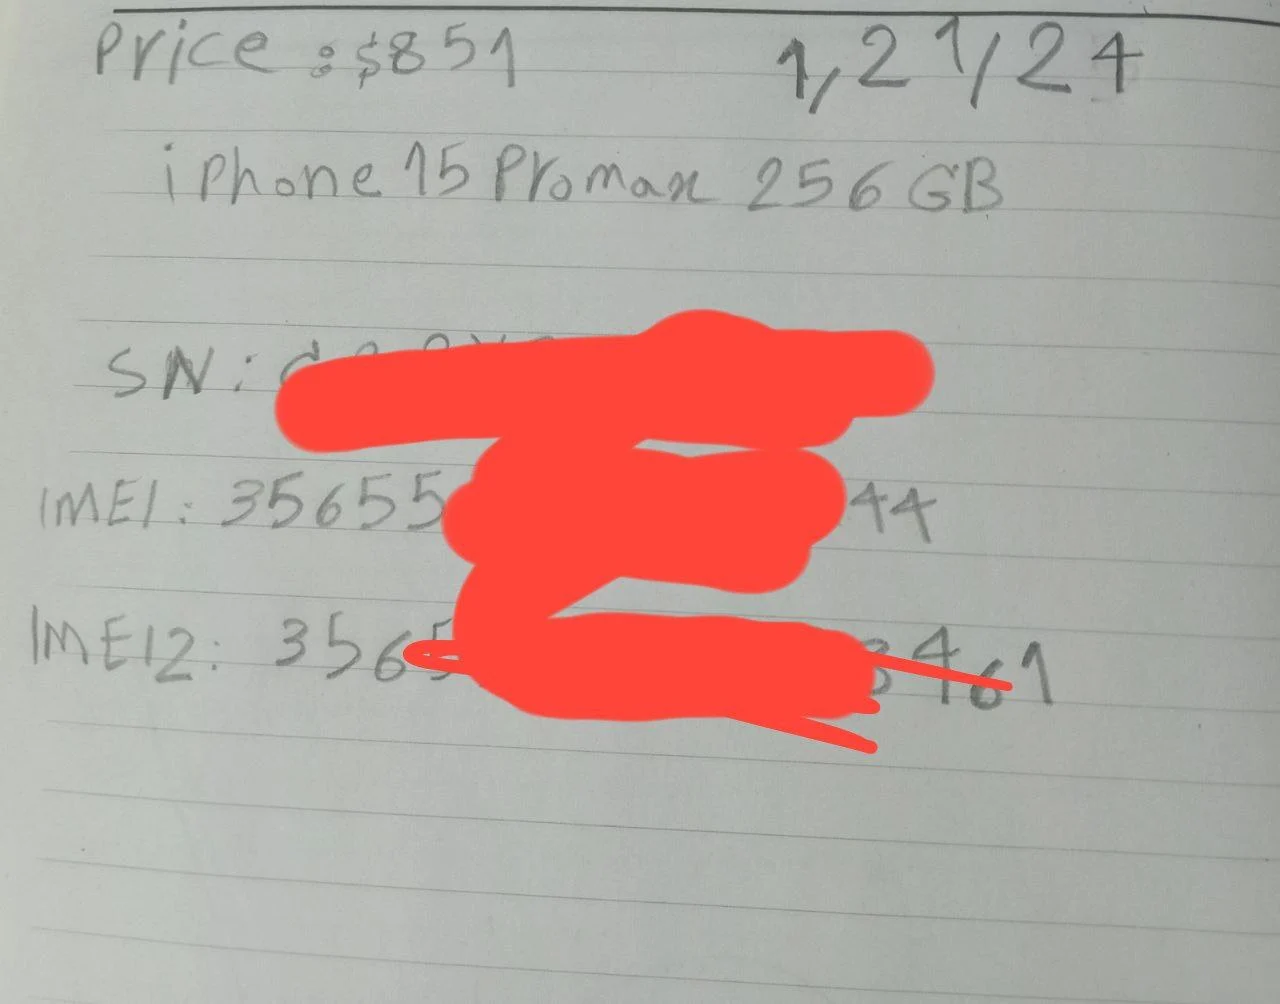 Price : $851 1,21/24
iPhone 15 Promax 256 GB
SN:
IMEI: 35655 44
IMEI2: 356 461